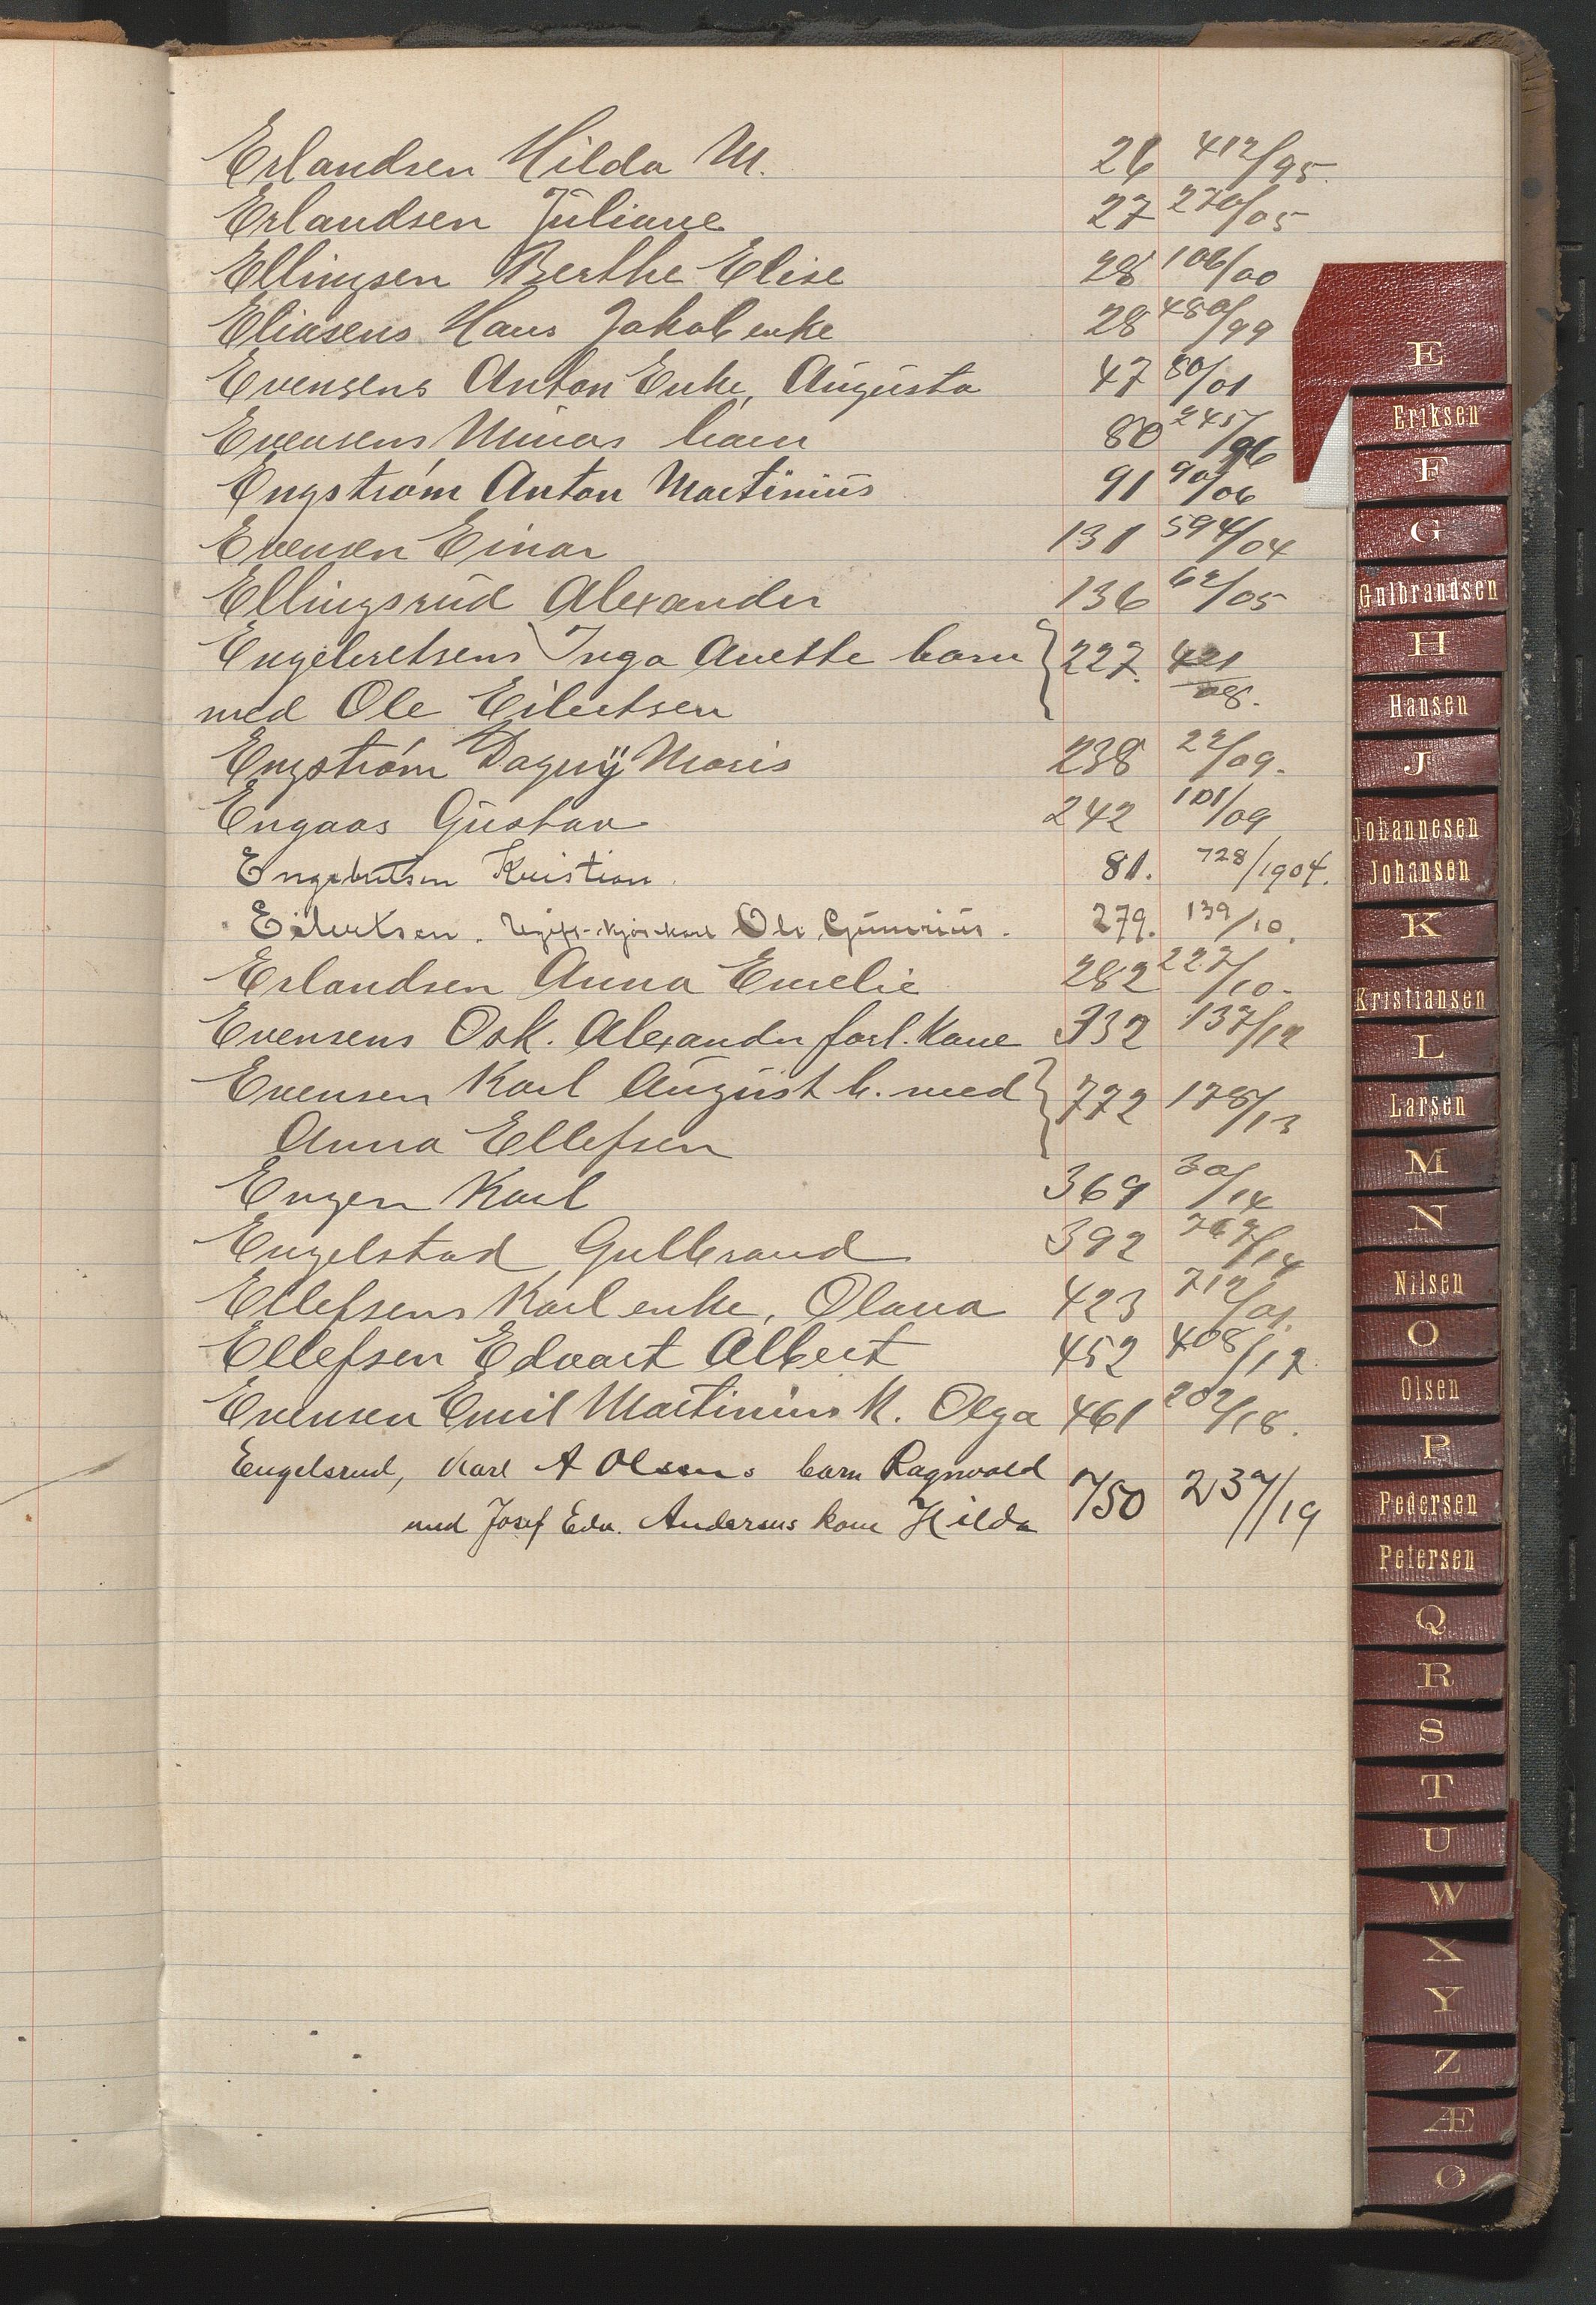 Erlandsen Hilda M. 26 412/95.
Erlandsen Juliane 27 270/05
Ellingsen Berthe Elise 28 106/00
Eliasens Hans Jakob enke 28 480/99
Evensens Anton Enke, Augusta 47 80/01
Evensens Minas barn 80 245/96
Engström Anton Martinius 91 90/06
Evensen Einar 131 594/04
Ellingsrud Alexander 136 62/05
Engebretsens Inga Anette barn 227. 421/08.
med Ole Eilertsen
Engström Dagny Maris 238 22/09.
Engaas Gustav 242 101/09
Engebretsen Kristian. 81. 728/1904.
Eilertsen. Ole Gunerius. 279. 139/10.
Erlandsen Anna Emelie 282 227/10.
Evensens Osk. Alexander forl. Kone 332 137/12
Evensen Karl August b. med 772 178/13
Anna Ellefsen
Engen Karl 369 30/14
Engelstad Gulbrand 392 /14
Ellefsens Karl enke, Olava 423 712/01.
Ellefsen Edvart Albert 452 408/17.
Evensen Emil Martinius K. Olga 461 202/18.
Engelsrud, Karl A Olsens barn Ragnvald 750 239/19
med Josef Edv. Andersens kone Hilda
E
Eriksen
F
G
Gulbrandsen
H
Hansen
J
Johannesen
Johansen
K
Kristiansen
L
Larsen
M
N
Nilsen
O
Olsen
P
Pedersen
Petersen
Q
R
S
T
U
W
X
Y
Z
Æ
Ø